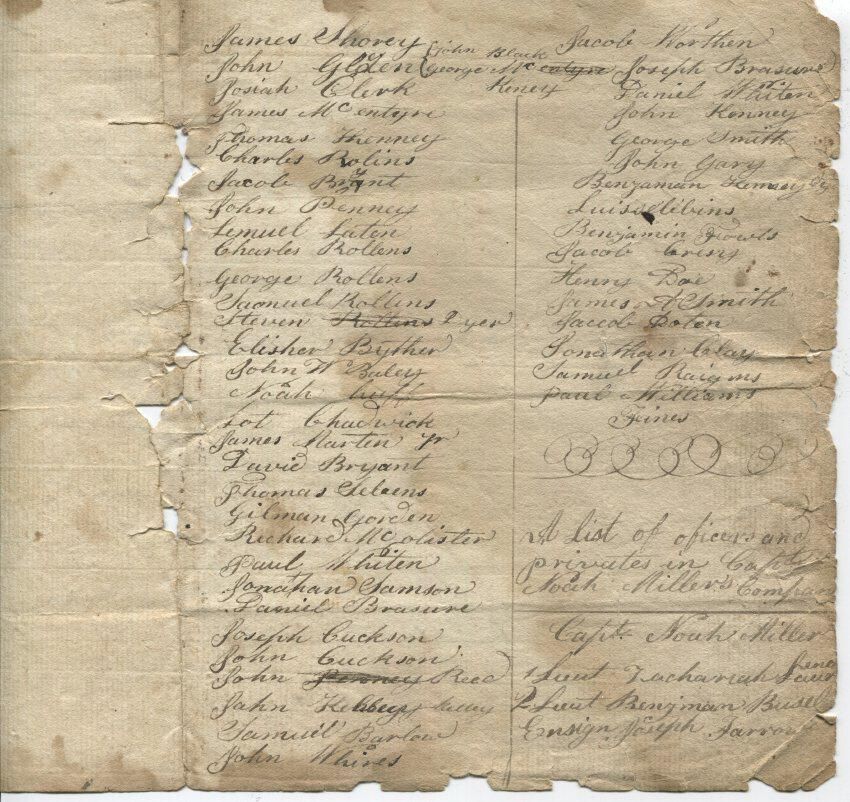 James Shorey
John Glden
Josiah Clerk
James McEntyre
Thomas Kenney
Charles Rolins
Jacob Brynt
John Penney
Lemuel Laten
Charles Rollens
George Rollens
Samuel Rollins
Steven Rollins 2 yer
Elisher Byther
John W Baley
Noah Luff
Lot Chadwick
James Marten Jr
David Bryant
Thomas
Gilman Gorden
Richard McColister
Paul Whiten
Jonathan Samson
Daniel Brasure
Joseph Cuckson
John Cuckson
John Penney Reed
John
Samuel Barlow
John Whires
John Black
George McEntyre
Kiney
Jacob Worthen
Joseph Brasure
Daniel Whiten
John Kenney
George Smith
John Gary
Benjaman
Benjamin Fowls
Jacob
Henry Doe
James A Smith
Jacob Doten
Jonathan Clay
Samuel Raigins
Paul Williams
Fines
A list of oficers and
privates in Capt
Noah Miller's Company
Capt. Noah Miller
1 Lieut Zachariah
2 Lieut Benjman
Ensign Joseph Farrow